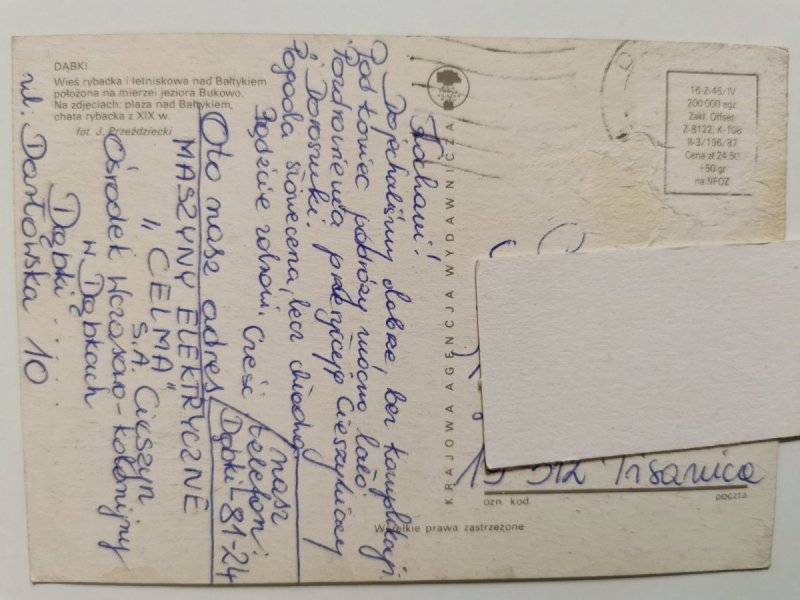 DĄBKI
Wieś rybacka i letniskowa nad Bałtykiem
położona na mierzei jeziora Bukowo.
Na zdjęciach: plaża nad Bałtykiem,
chata rybacka z XIX w.
fot. J. Przeździecki
Kochani!
Dojechaliśmy dobrze, bez komplikacji.
Pod koniec podróży mocno lało.
Pozdrowienia przesyłają Cieszyniacy
i Doroszuki.
Pogoda słoneczna, lecz chłodno
Bądźcie zdrowi. Cześć
Oto nasz adres
MASZYNY ELEKTRYCZNE
„CELMA"
S.A. Cieszyn
Ośrodek Wczasowo-kolonijny
w Dąbkach
Dąbki
ul: Darłowska 10
nasz
telefon:
Dąbki 81-24
KRAJOWA AGENCJA WYDAWNICZA
16-Z-45/IV
200 000 egz.
Zakł. Offset.
Z-8122, K-108
II-3/196/87
Cena zł 24,50
+50 gr
na NFOZ
312
ozn. kod.
poczta
Wszelkie prawa zastrzeżone